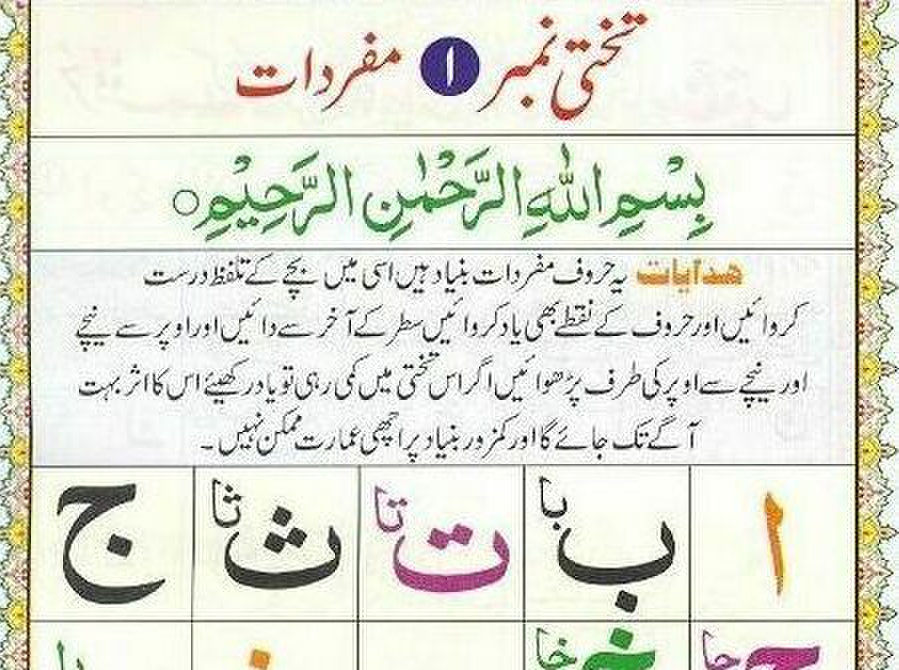 تختی نمبر ۱ مفردات
بِسْمِ اللّٰهِ الرَّحْمٰنِ الرَّحِيْمِ ○
ھدایات یہ حروف مفردات بنیاد ہیں اسی میں بچے کے تلفظ درست
کروائیں اور حروف کے نقطے بھی یاد کروائیں سطر کے آخر سے دائیں اور اوپر سے نیچے
اور نیچے سے اوپر کی طرف پڑھوائیں اگر اس تختی میں کمی رہی تو یاد رکھیئے اس کا اثر بہت
آگے تک جائے گا اور کمزور بنیاد پر اچھی عمارت ممکن نہیں ۔
ا ب با ت تا ث ثا ج
ح حا خ خا